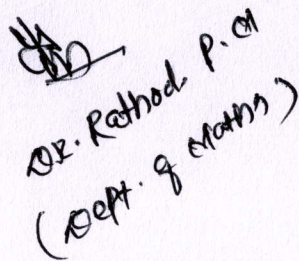 Dr. Rathod. P. M
(Dept. of Maths)